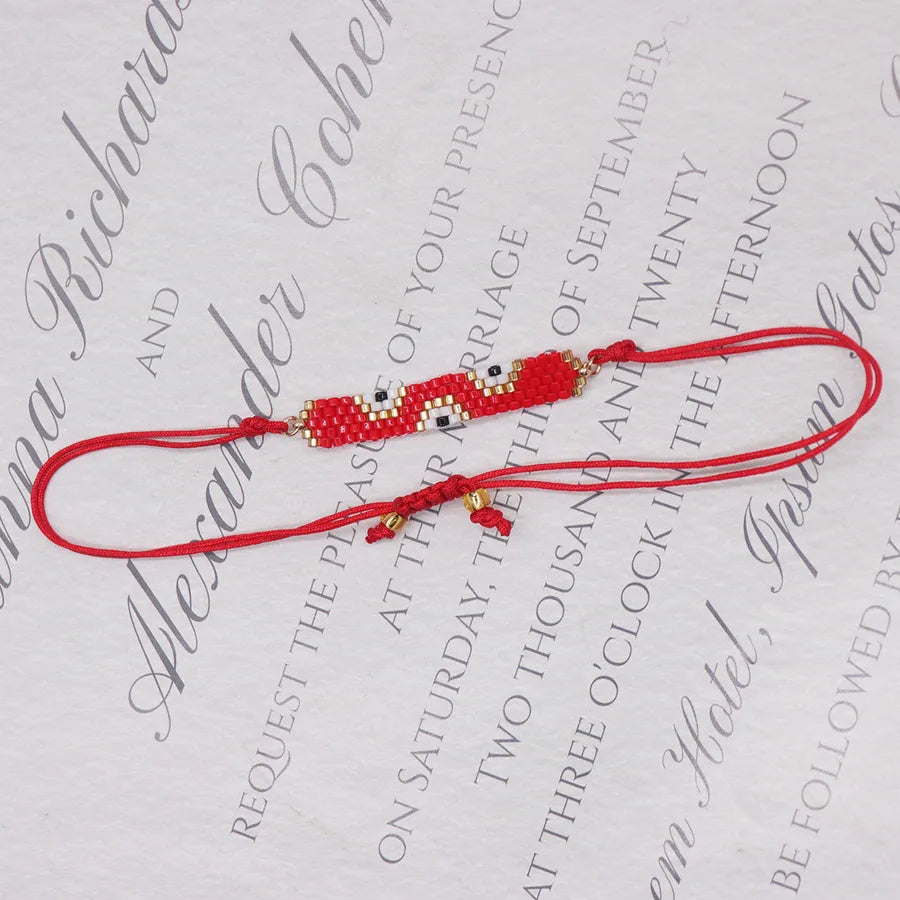 nna Richards
AND
Alexander Cohen
REQUEST THE PLEASURE OF YOUR PRESENCE
AT THEIR MARRIAGE
ON SATURDAY, THE OF SEPTEMBER
TWO THOUSAND AND TWENTY
AT THREE O'CLOCK IN THE AFTERNOON
em Hotel, Ipsum Gatos
BE FOLLOWED BY